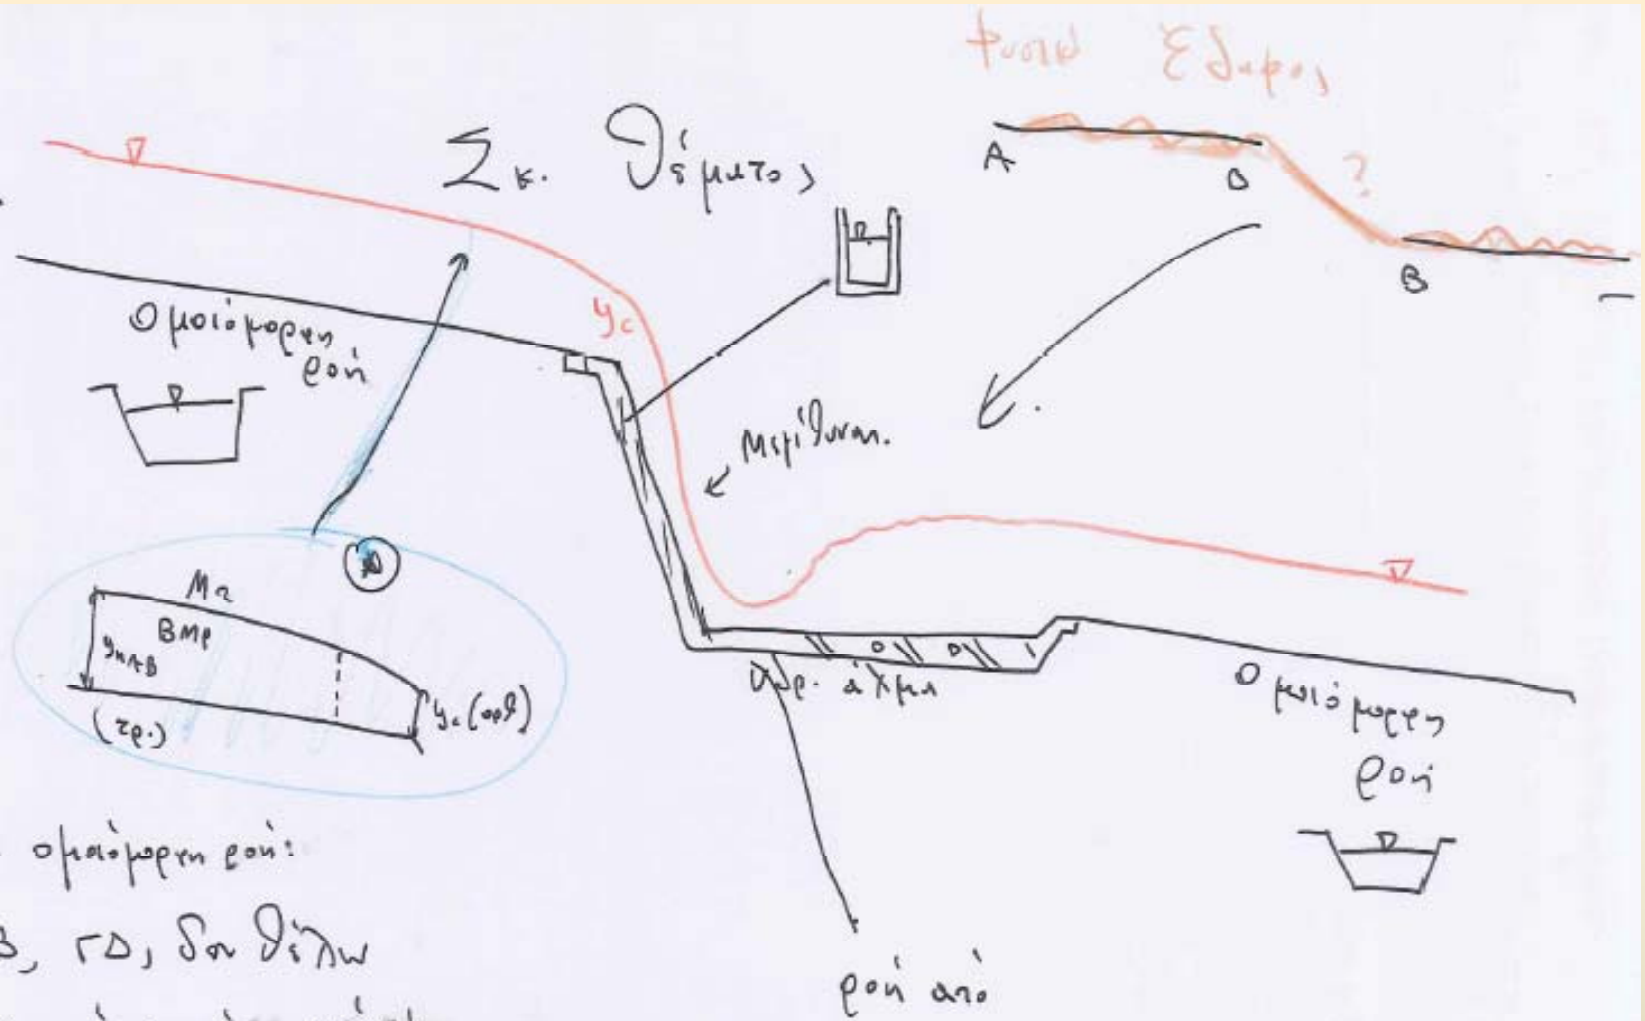 φυσικό έδαφος
Σκ. Θέματος
A
B
?
B
Ομοιόμορφη
ροή
yc
M2
ΒΜΡ
ynAB
yc (ορθ)
(τρ.)
Υδρ. άλμα
Ομοιόμορφη
ροή
ομοιόμορφη ροή:
Β, ΓΔ, δεν θέλω
ροή από